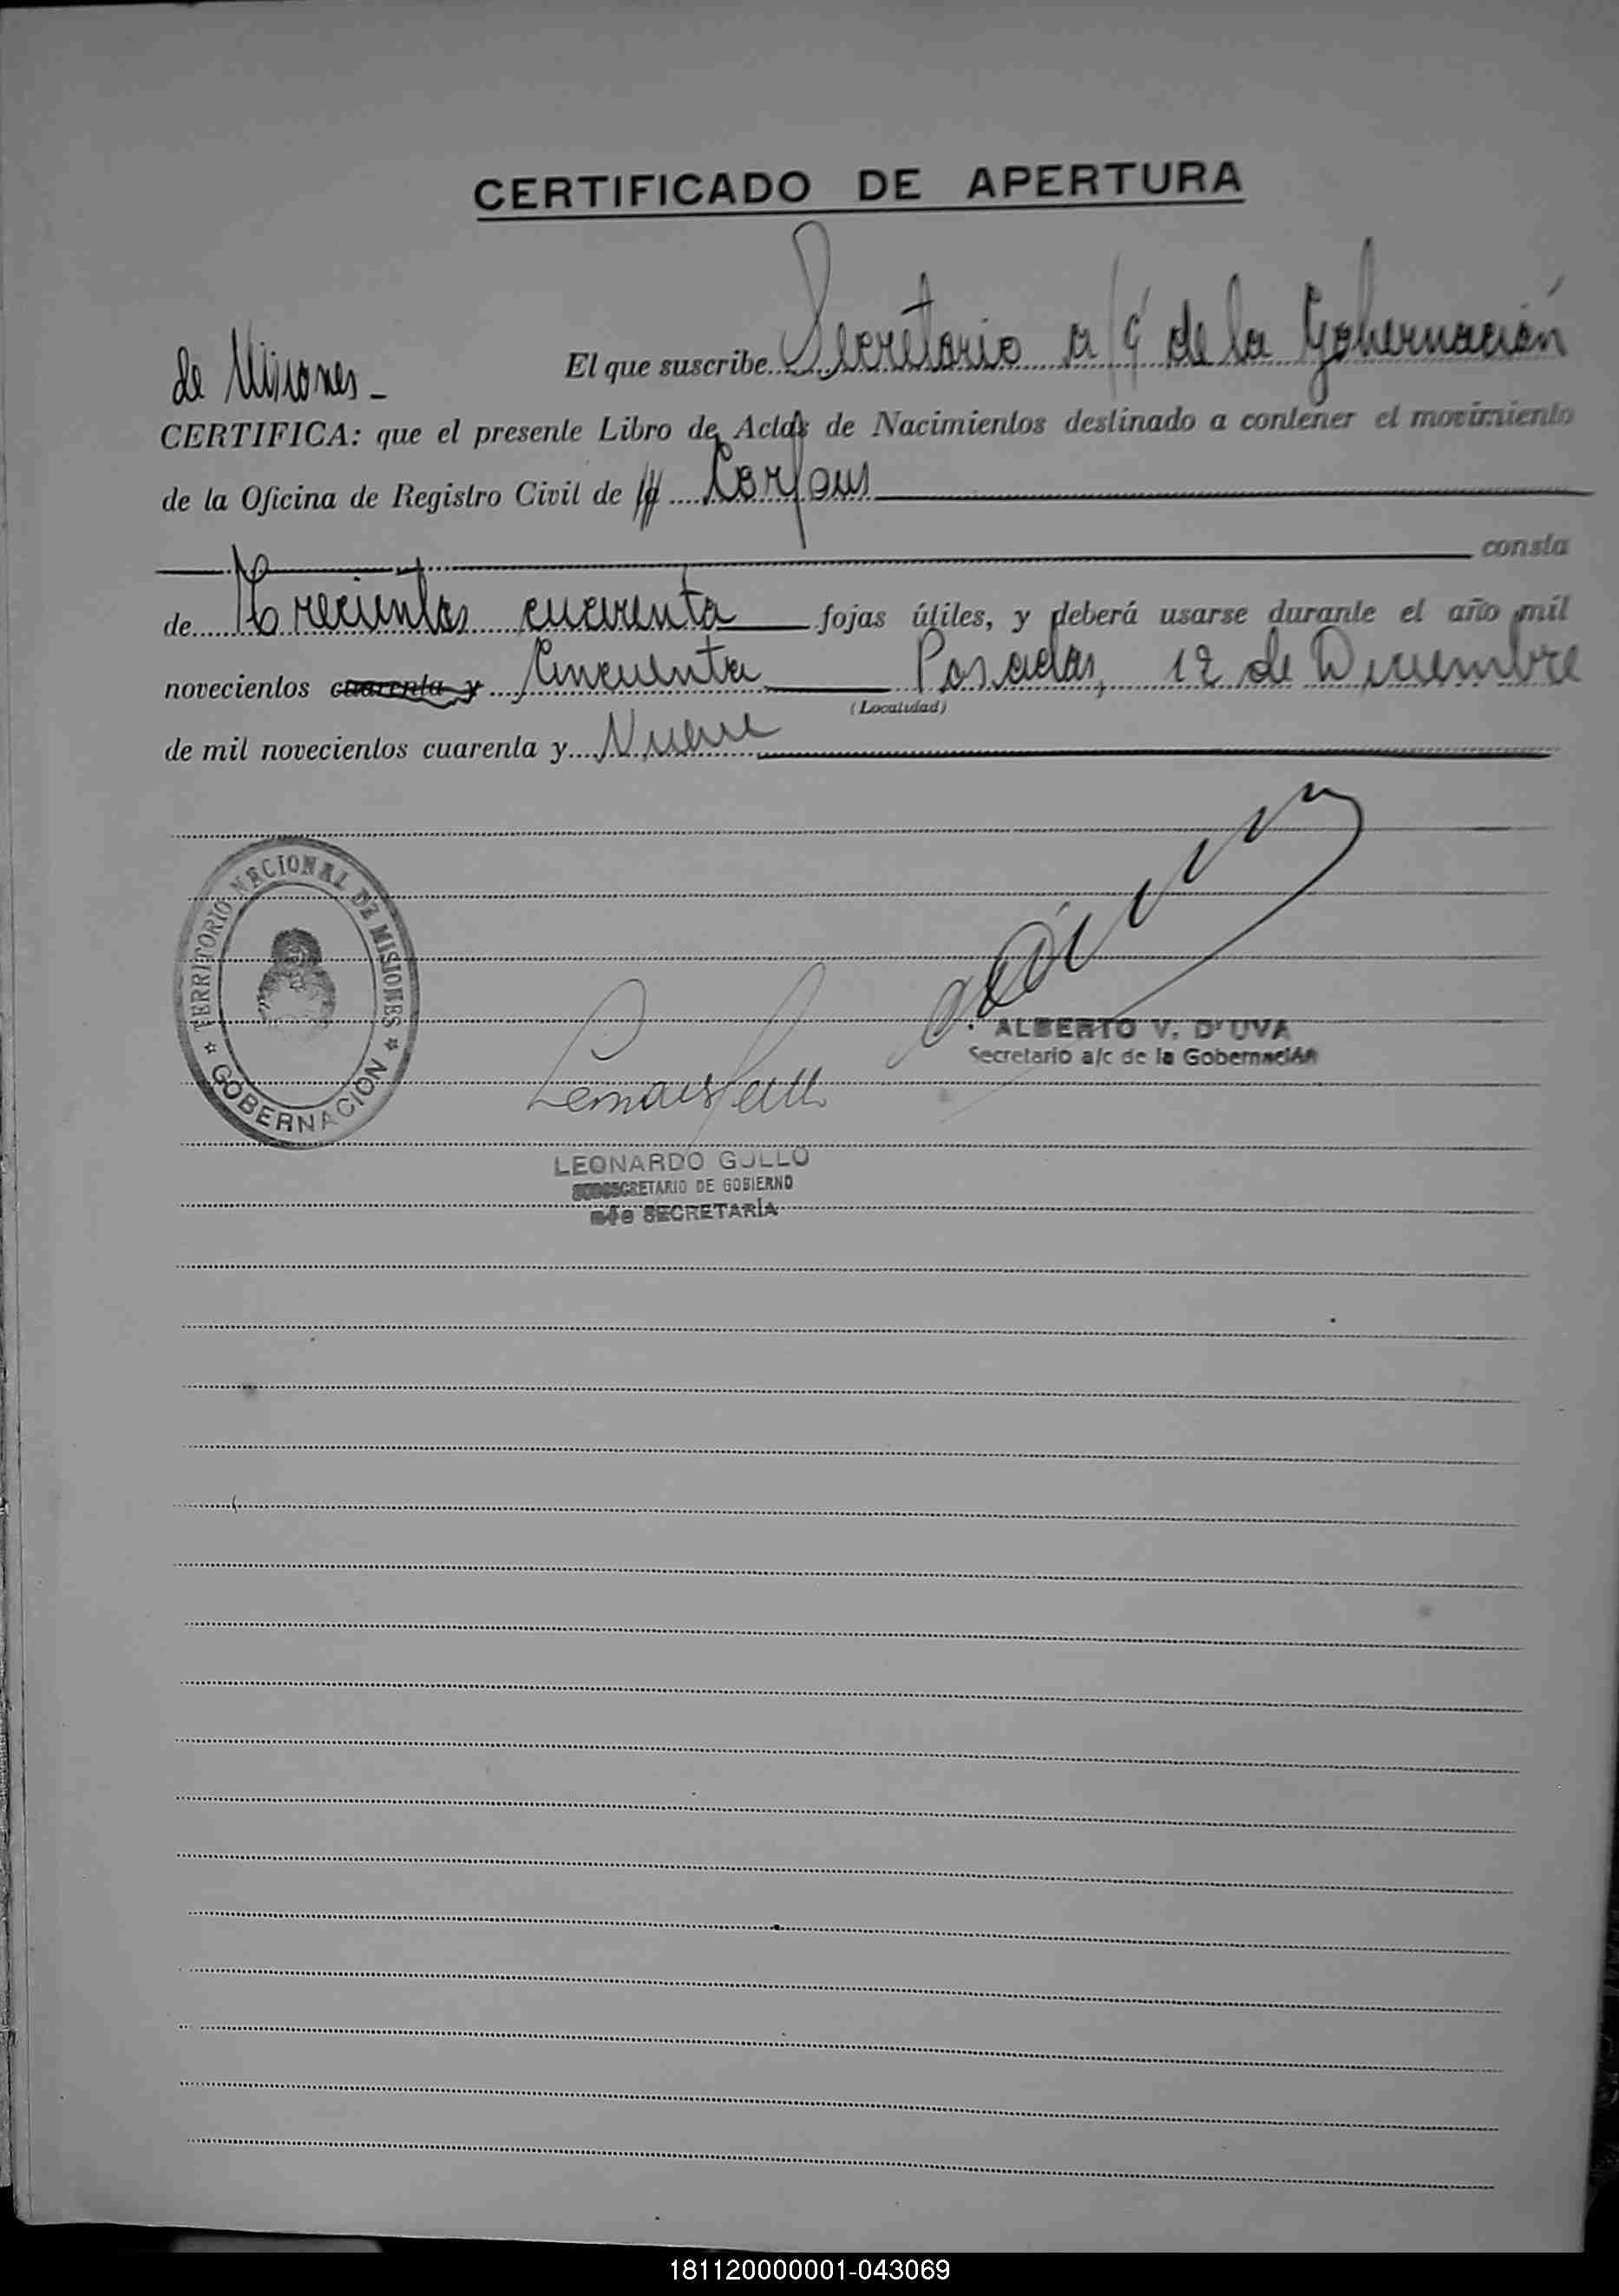 CERTIFICADO DE APERTURA
El que suscribe Secretario a/c de la Gobernación
de Misiones -
CERTIFICA: que el presente Libro de Actas de Nacimientos destinado a contener el movimiento
de la Oficina de Registro Civil de la Corpus
consta
de Trecientas cuarenta fojas útiles, y deberá usarse durante el año mil
novecientos cuarenta y Cincuenta Posadas, 12 de Diciembre
(Localidad)
de mil novecientos cuarenta y Nueve
TERRITORIO NACIONAL DE MISIONES
GOBERNACION
ALBERTO V. D'UVA
Secretario a/c de la Gobernación
LEONARDO GULLO
SUBSECRETARIO DE GOBIERNO
SECRETARÍA
181120000001-043069